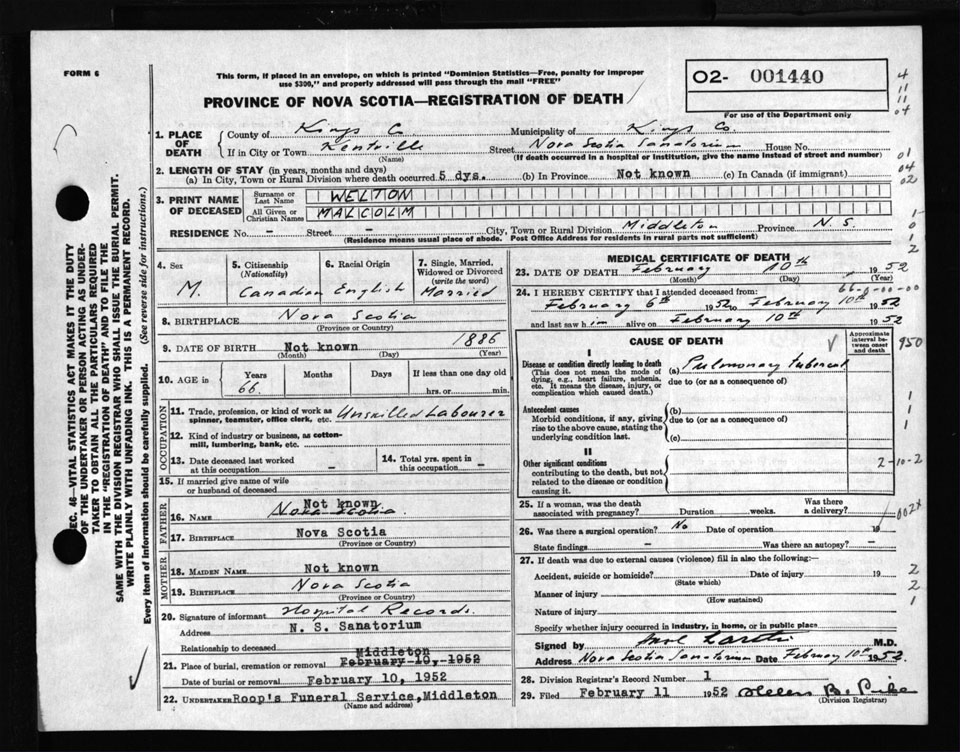 FORM 6
This form, if placed in an envelope, on which is printed "Dominion Statistics—Free, penalty for improper
use $300," and properly addressed will pass through the mail "FREE"
O2- 001440
For use of the Department only
PROVINCE OF NOVA SCOTIA—REGISTRATION OF DEATH
4
11
11
04
1. PLACE OF DEATH
County of Kings Co Municipality of Kings Co.
If in City or Town Kentville Street Nova Scotia Sanatorium House No.
(Name) (If death occurred in a hospital or institution, give the name instead of street and number)
01
04
02
2. LENGTH OF STAY (in years, months and days)
(a) In City, Town or Rural Division where death occurred 5 dys. (b) In Province Not known (c) In Canada (if immigrant)
3. PRINT NAME OF DECEASED
Surname or Last Name WELTON
All Given or Christian Names MALCOLM
RESIDENCE No. – Street – City, Town or Rural Division Middleton Province N.S.
(Residence means usual place of abode. Post Office Address for residents in rural parts not sufficient)
1
0
1
2
4. Sex M.
5. Citizenship (Nationality) Canadian
6. Racial Origin English
7. Single, Married, Widowed or Divorced (write the word) Married
8. BIRTHPLACE Nova Scotia
(Province or Country)
9. DATE OF BIRTH Not known 1886
(Month) (Day) (Year)
10. AGE in Years 66. Months Days If less than one day old
hrs. or min.
OCCUPATION
11. Trade, profession, or kind of work as spinner, teamster, office clerk, etc. Unskilled Labourer
12. Kind of industry or business, as cotton-mill, lumbering, bank, etc.
13. Date deceased last worked at this occupation –
14. Total yrs. spent in this occupation –
15. If married give name of wife or husband of deceased
FATHER
Not known
16. NAME Nova Scotia
17. BIRTHPLACE Nova Scotia
(Province or Country)
MOTHER
18. MAIDEN NAME Not known
19. BIRTHPLACE Nova Scotia
(Province or Country)
20. Signature of informant Hospital Records.
Address N. S. Sanatorium
Relationship to deceased
Middleton
21. Place of burial, cremation or removal February 10, 1952
Date of burial or removal February 10, 1952
22. UNDERTAKER Roop's Funeral Service, Middleton
(Name and address)
MEDICAL CERTIFICATE OF DEATH
23. DATE OF DEATH February 10th 1952
66-0-00-00
24. I HEREBY CERTIFY that I attended deceased from:
February 6th 1952 to February 10th 1952
and last saw him alive on February 10th 1952
CAUSE OF DEATH
Approximate interval between onset and death
950
I
Disease or condition directly leading to death
(This does not mean the mode of dying, e.g., heart failure, asthenia, etc. It means the disease, injury, or complication which caused death.)
(a) Pulmonary tubercul
due to (or as a consequence of)
Antecedent causes
Morbid conditions, if any, giving rise to the above cause, stating the underlying condition last.
(b)
due to (or as a consequence of)
(c)
1
1
1
II
Other significant conditions
contributing to the death, but not related to the disease or condition causing it.
2-10-2
25. If a woman, was the death associated with pregnancy? Duration weeks. Was there a delivery?
002x
26. Was there a surgical operation? No Date of operation 19
State findings – Was there an autopsy? –
27. If death was due to external causes (violence) fill in also the following:—
Accident, suicide or homicide? Date of injury 19
(State which)
Manner of injury
(How sustained)
Nature of injury
2
2
1
Specify whether injury occurred in industry, in home, or in public place
Signed by M.D.
Address Nova Scotia Sanatorium Date February 10th 1952.
28. Division Registrar's Record Number 1
29. Filed February 11 1952 Helen B.
(Division Registrar)
SEC. 46—VITAL STATISTICS ACT MAKES IT THE DUTY
OF THE UNDERTAKER OR PERSON ACTING AS UNDER-
TAKER TO OBTAIN ALL THE PARTICULARS REQUIRED
IN THE "REGISTRATION OF DEATH" AND TO FILE THE
SAME WITH THE DIVISION REGISTRAR WHO SHALL ISSUE THE BURIAL PERMIT.
WRITE PLAINLY WITH UNFADING INK. THIS IS A PERMANENT RECORD.
Every item of information should be carefully supplied. (See reverse side for instructions.)